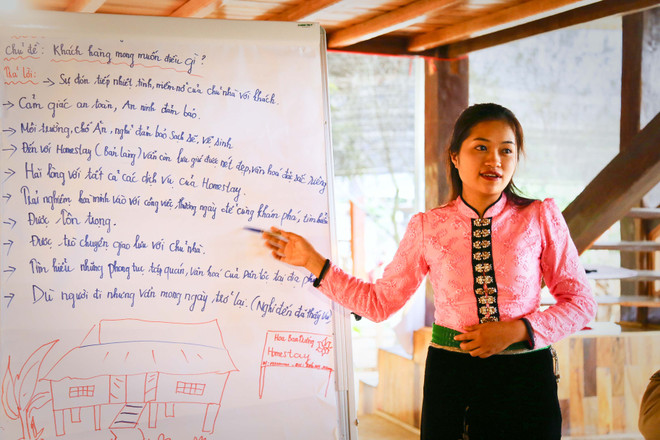 Chủ đề: Khách hàng mong muốn điều gì?
Trả lời: → Sự đón tiếp nhiệt tình, niềm nở của chủ nhà với khách.
→ Cảm giác an toàn, An ninh đảm bảo.
→ Môi trường, chế Ăn, nghỉ đảm bảo Sạch sẽ, vệ sinh
→ Đến với Homestay (Bản làng) vẫn còn lưu giữ được nét đẹp, văn hoá đặc sắc riêng
→ Hài lòng với tất cả các dịch vụ của Homestay.
→ Trải nghiệm hoà mình vào với công việc thường ngày để cùng khám phá, tìm hiểu
→ Được Tôn trọng.
→ Được trò chuyện giao lưu với chủ nhà.
→ Tìm hiểu những phong tục tập quán, văn hoá của Dân tộc tại địa ph
→ Dù người đi nhưng vẫn mong ngày trở lại. (Nghĩ đến đã thấy vui
Hoa Ban
Homestay